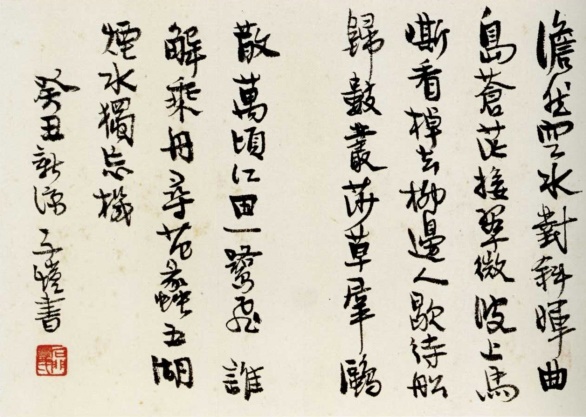 澹然空水對斜暉曲
島蒼茫接翠微波上馬
嘶看棹去柳邊人歇待船
歸數叢莎草羣鷗
散萬頃江田一鷺飛誰
解乘舟尋范蠡五湖
煙水獨忘機
癸丑新涼 子愷書